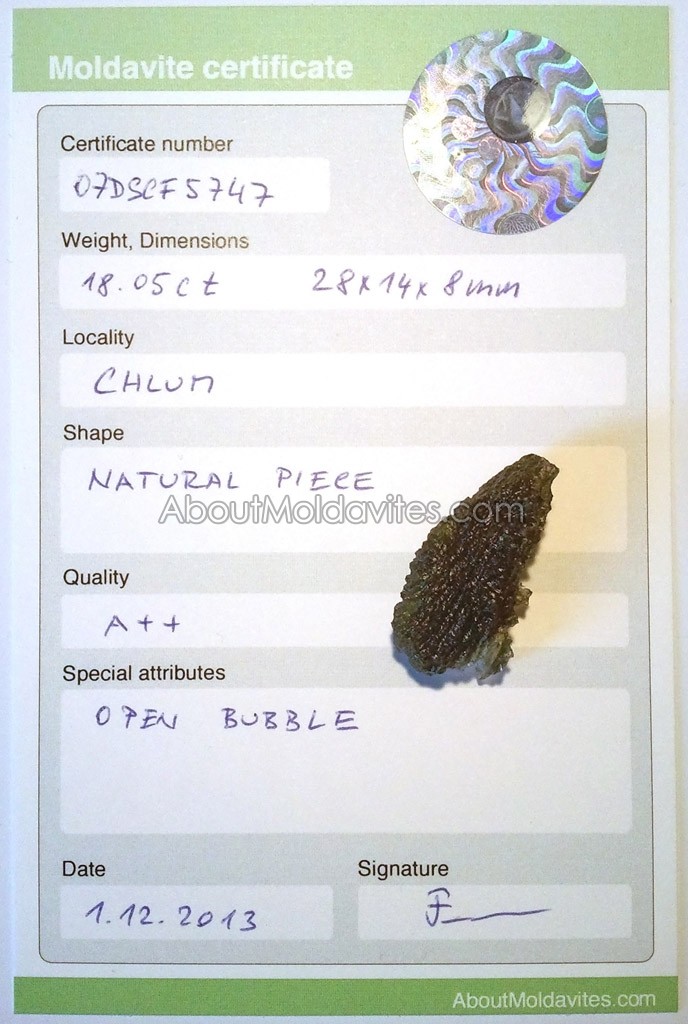 Moldavite certificate
Certificate number
07DSCF5747
Weight, Dimensions
18.05ct 28x14x8mm
Locality
CHLUM
Shape
NATURAL PIECE
AboutMoldavites.com
Quality
A++
Special attributes
OPEN BUBBLE
Date Signature
1.12.2013
AboutMoldavites.com